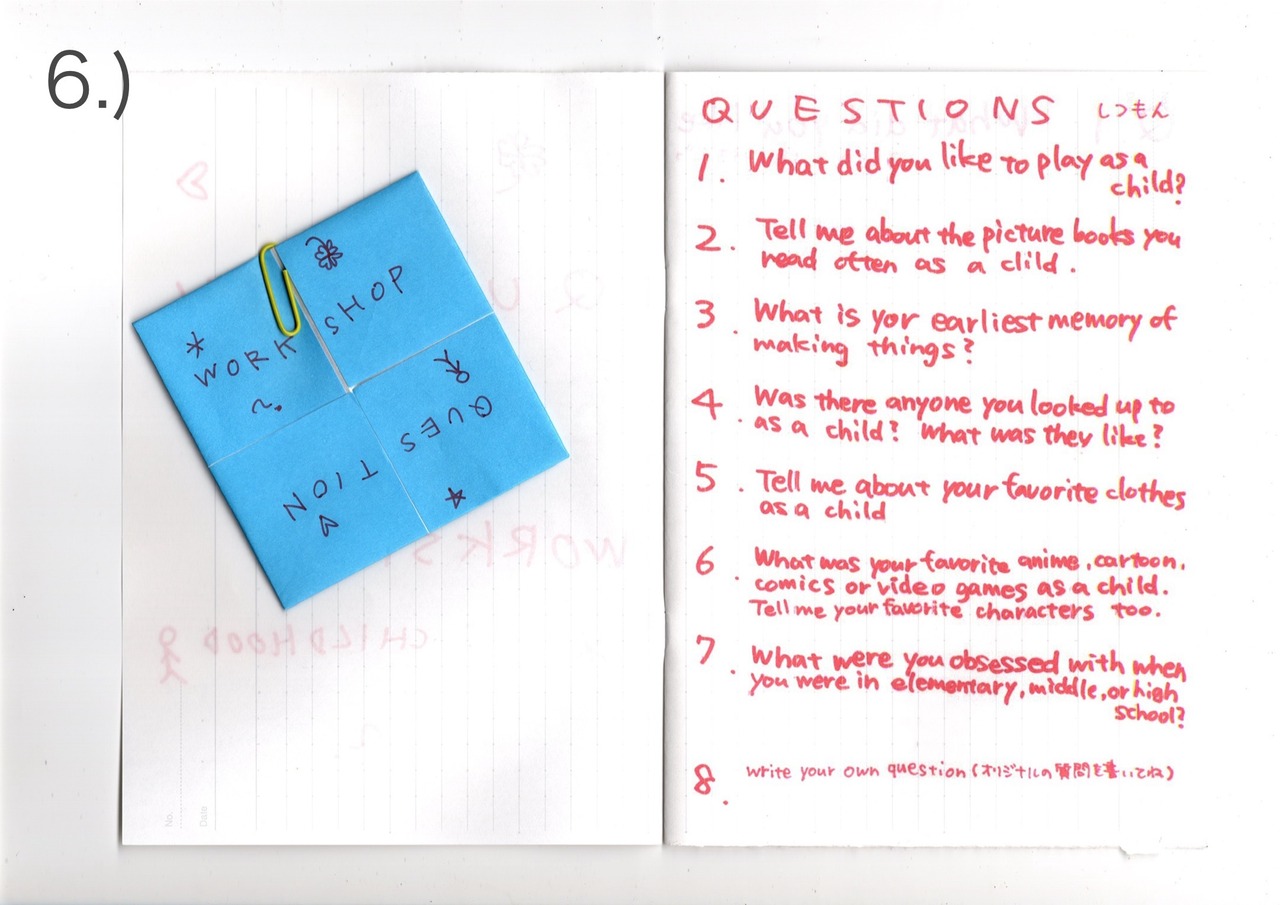 6.)
* WORK SHOP
QUES
TION
No.
Date
CHILDHOOD
QUESTIONS しつもん
1. What did you like to play as a
child?
2. Tell me about the picture books you
read often as a clild.
3. What is yor earliest memory of
making things?
4. Was there anyone you looked up to
as a child? What was they like?
5. Tell me about your favorite clothes
as a child
6. What was your favorite anime, cartoon,
comics or video games as a child.
Tell me your favorite characters too.
7. What were you obsessed with when
you were in elementary, middle, or high
school?
8. write your own question (オリジナルの質問を書いてね)